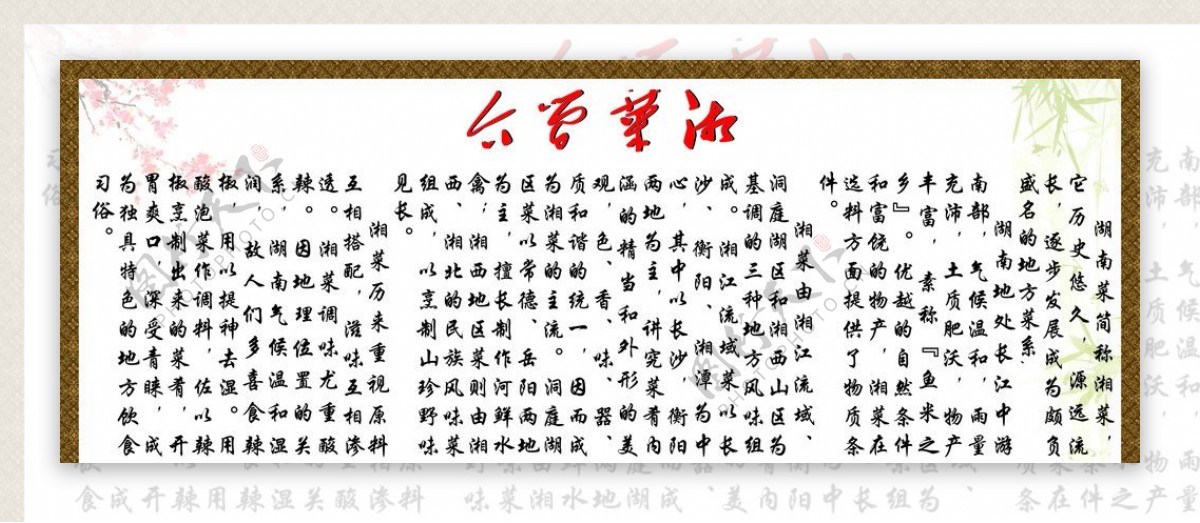 湘菜简介
湖南菜简称湘菜，
它历史悠久，源远流
长，逐步发展成为颇负
盛名的地方菜系。
湖南地处长江中游
南部，气候温和，雨量
充沛，土质肥沃，物产
丰富，素称『鱼米之
乡』。优越的自然条件
和富饶的物产，湘菜在
选料方面提供了物质条
件。
湘菜由湘江流域、
洞庭湖区和湘西山区为
基调的三种地方风味组
成。湘江流域菜以长
沙、衡阳、湘潭为中
心，其中以长沙，衡阳
两地为主，讲究菜肴内
涵的精当和外形的美
观，色、香、味、器、
质和谐的统一，因而成
为湘菜的主流。洞庭湖
区菜以常德、岳阳两地
为主，擅长制作河鲜水
禽，湘西地区菜则由湘
西、湘北的民族风味菜
组成，以烹制山珍野味
见长。
湘菜历来重视原料
互相搭配，滋味互相渗
透。湘菜调味尤重酸
辣。因地理位置的关
系，湖南气候温和湿
润，故人们多喜食辣
椒，用以提神去湿。用
酸泡菜作调料，佐以辣
椒烹制出来的菜肴，开
胃爽口，深受青睐，成
为独具特色的地方饮食
习俗。